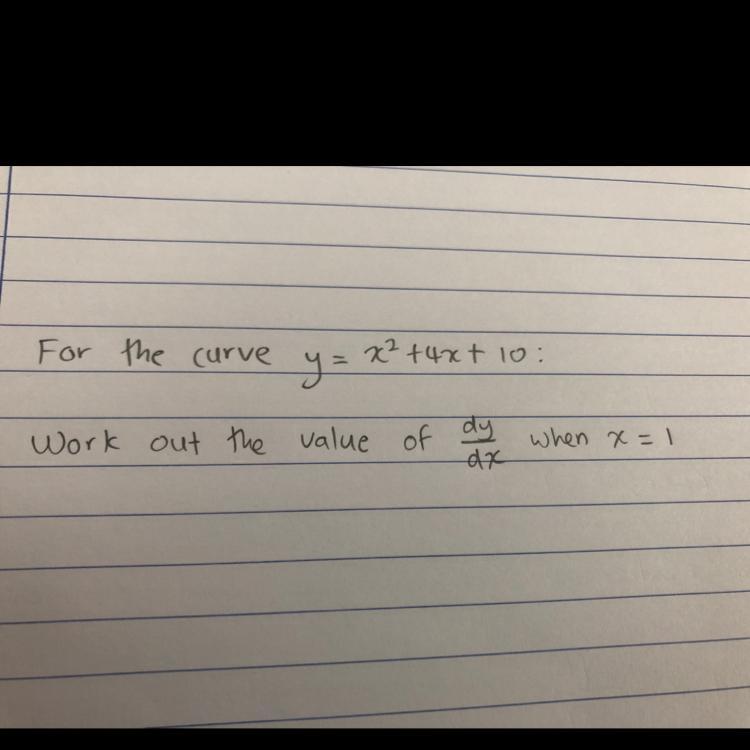 For the curve y = x² + 4x + 10:
Work out the value of dy/dx when x = 1